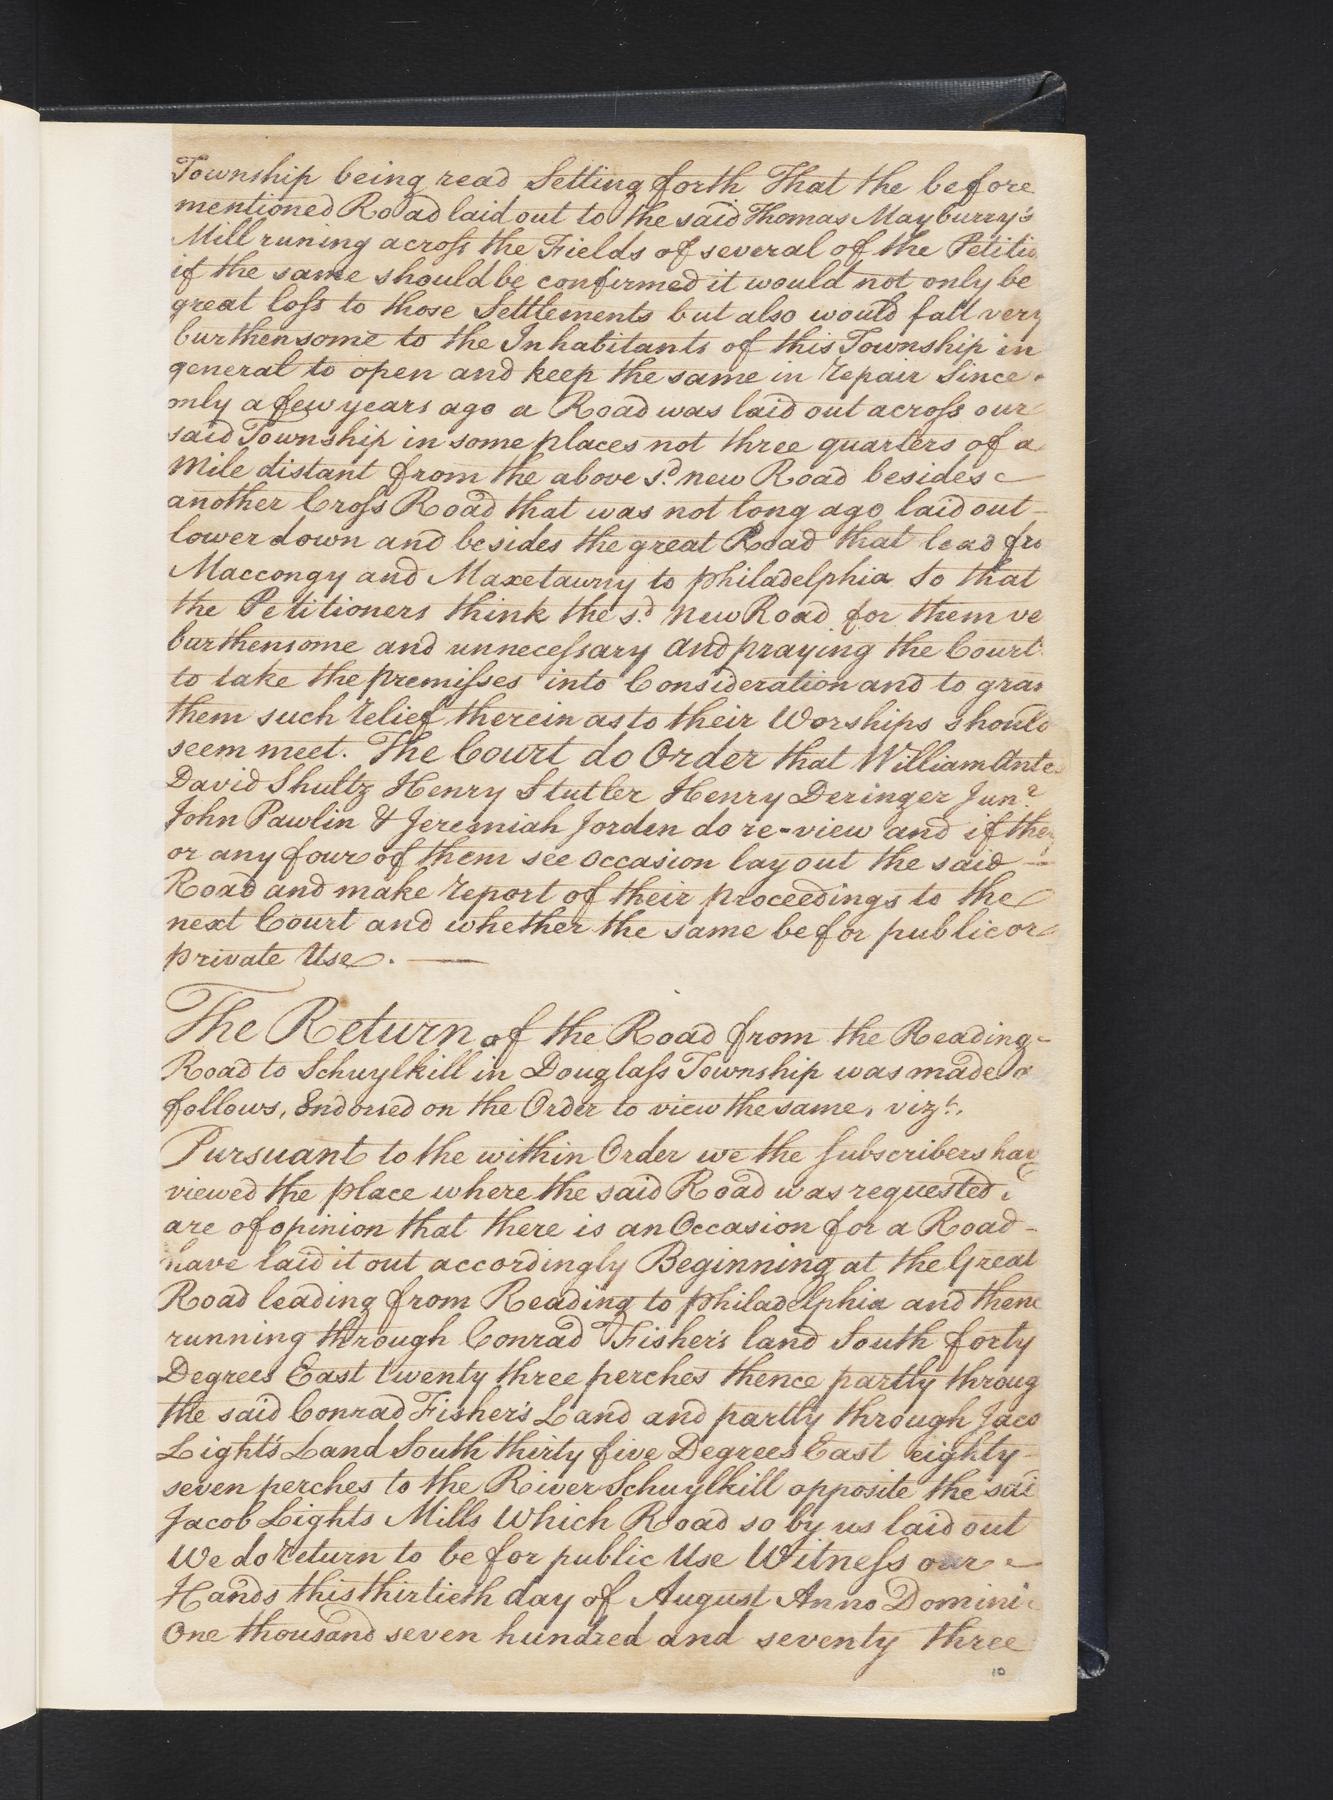 Township being read Setting forth That the before
mentioned Road laid out to the said Thomas Mayburry's
Mill runing across the Fields of several of the Petitio
if the same should be confirmed it would not only be
great loss to those Settlements but also would fall very
burthensome to the Inhabitants of this Township in
general to open and keep the same in repair Since
only a few years ago a Road was laid out across our
said Township in some places not three quarters of a
Mile distant from the above sd. new Road besides
another Cross Road that was not long ago laid out
lower down and besides the great Road that lead fro
Maccongy and Maxetawny to philadelphia So that
the Petitioners think the sd. new Road for them ve
burthensome and unnecessary and praying the Court
to take the premisses into Consideration and to gran
them such relief therein as to their Worships should
seem meet. The Court do Order that William Antes
David Shultz Henry Stutler Henry Deringer Junr.
John Pawlin & Jeremiah Jorden do re-view and if they
or any four of them see occasion lay out the said
Road and make report of their proceedings to the
next Court and whether the same be for public or
private Use.
The Return of the Road from the Reading
Road to Schuylkill in Douglass Township was made a
follows, Endorsed on the Order to view the same, vizt.
Pursuant to the within Order we the Subscribers hav
viewed the place where the said Road was requested
are of opinion that there is an Occasion for a Road
have laid it out accordingly Beginning at the Great
Road leading from Reading to philadelphia and thenc
running through Conrad Fisher's land South forty
Degrees East twenty three perches thence partly throug
the said Conrad Fisher's Land and partly through Jaco
Light's Land South thirty five Degrees East eighty
seven perches to the River Schuylkill opposite the sai
Jacob Lights Mills Which Road so by us laid out
We do return to be for public Use Witness our
Hands this thirtieth day of August Anno Domini
One thousand seven hundred and seventy three
10